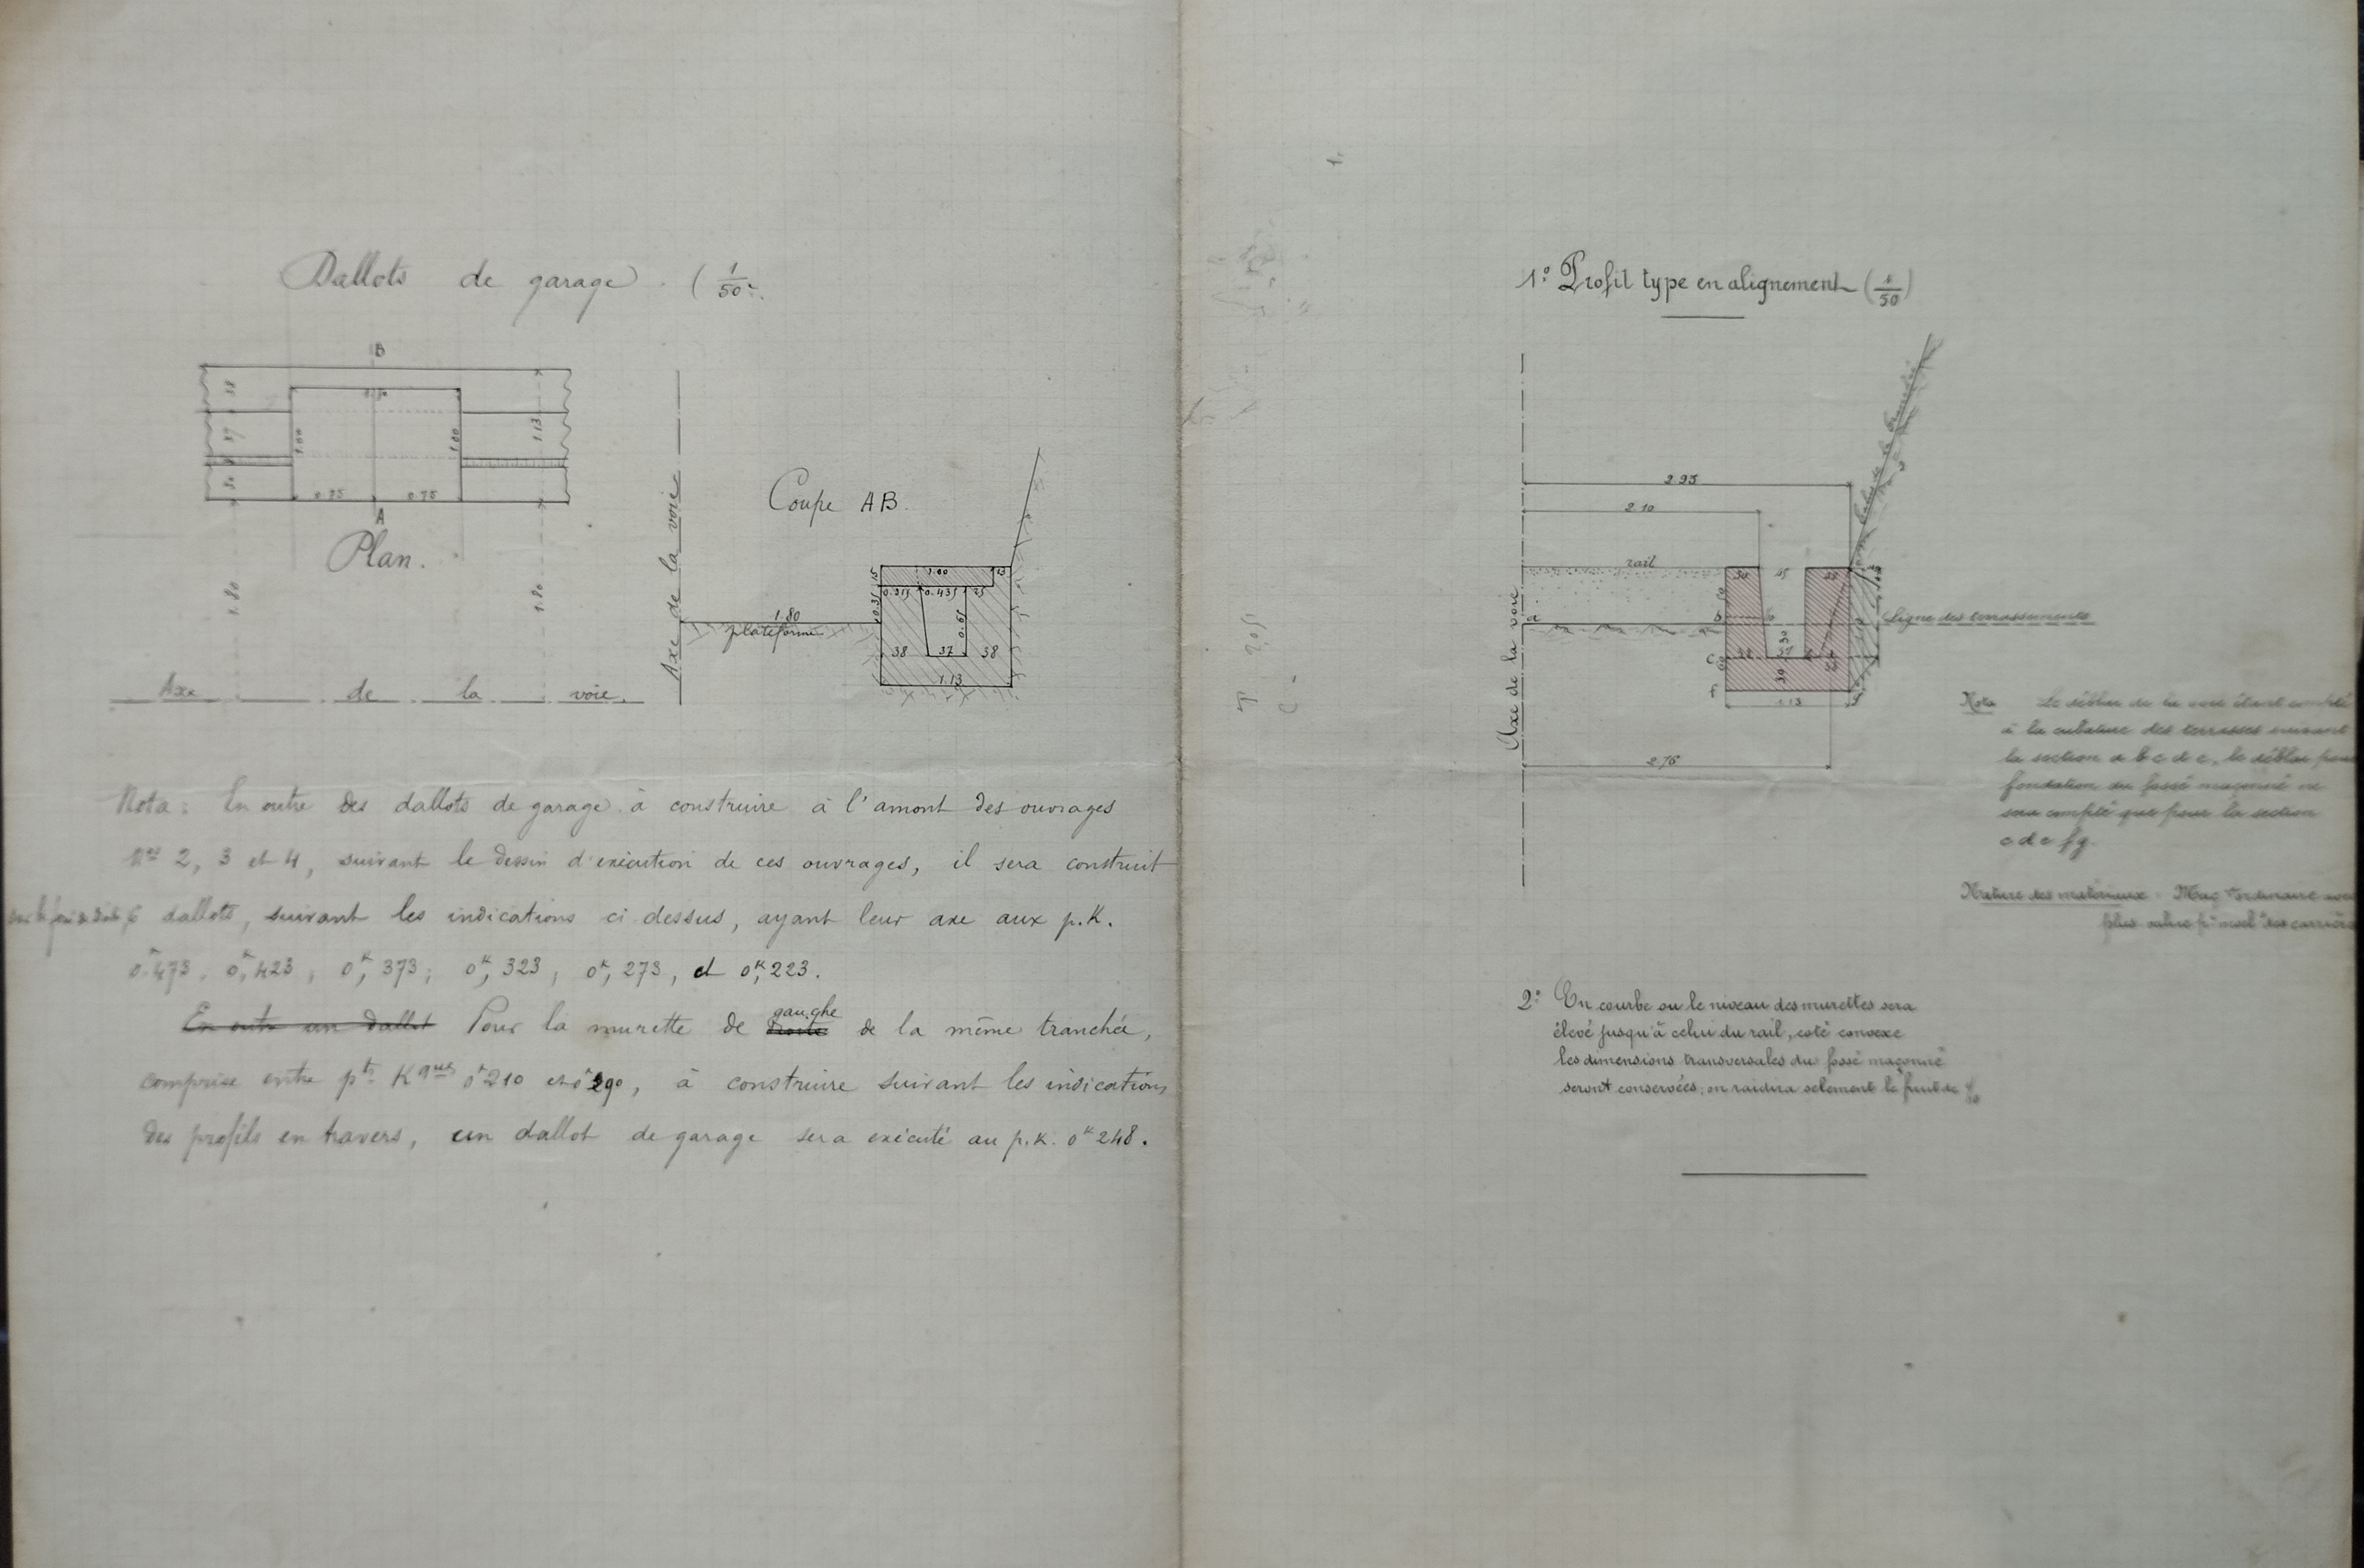 Dallots de garage. (1/50e.
B
38
1.50
37
1.00
1.00
1.13
0.75 0.75
A
Plan.
1.80
1.80
Axe de la voie.
Axe de la voie
Coupe AB.
1.00 13
0.315 0.435 25
0.35
1.80
plateforme
0.65
38 37 38
1.13
Nota : En outre des dallots de garage à construire à l'amont des ouvrages
Nos 2, 3 et 4, suivant le dessin d'exécution de ces ouvrages, il sera construit
6 dallots, suivant les indications ci dessus, ayant leur axe aux p.K.
0k,473, 0k,423, 0k,373; 0k,323, 0k,273, et 0k,223.
En outre un dallot Pour la murette de droite gauche de la même tranchée,
comprise entre pts Kques 0k210 et 0k290, à construire suivant les indications
des profils en travers, un dallot de garage sera exécuté au p.K. 0k248.
1° Profil type en alignement (1/50)
2.95
2.10
rail
45
a
b
Ligne des terrassements
30
c
30
f
1.13
2.76
Axe de la voie
Nota Le déblai de la voie étant compté
à la cubature des terrasses suivant
la section a b c d e, le déblai pour
fondation du fossé maçonné ne
sera compté que pour la section
c d e f g.
Nature des matériaux Maç ordinaire avec
plus value pr moel des carrières
2° En courbe ou le niveau des murettes sera
élevé jusqu'à celui du rail, coté convexe
les dimensions transversales du fossé maçonné
seront conservées; on raidira selement le fruit de